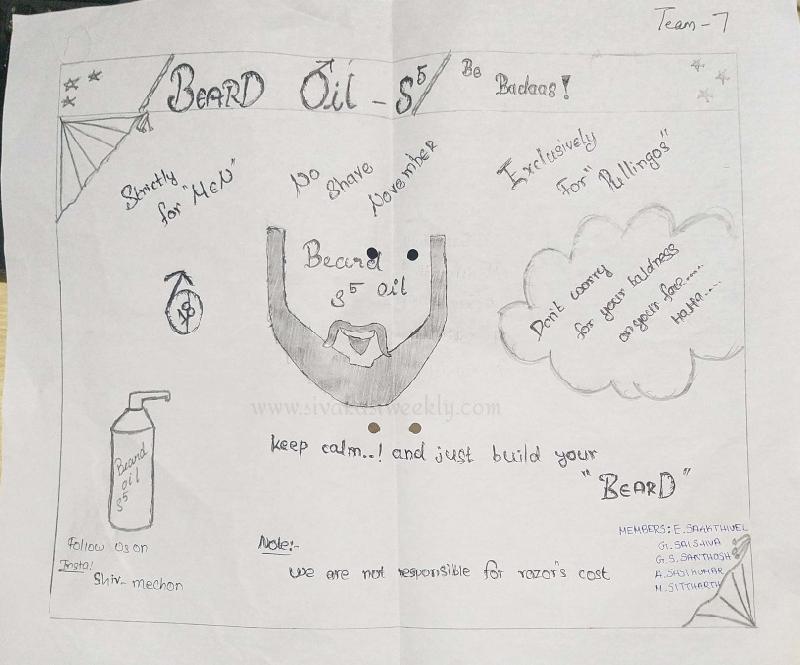 Team-7
BEARD Oil - S5
Be
Badaas!
Strictly
for "MEN"
No
Shave
November
Exclusively
For "Pullingos"
Beard
S5 oil
18
Don't worry
for your baldness
on your face.....
HaHa....
www.sivakasiweekly.com
keep calm..! and just build your
"BEARD"
Beard
oil
S5
Follow Us on
Insta!
Shiv-mechon
Note:-
We are not responsible for razor's cost
MEMBERS: E. SAKTHIVEL
G. SAISHIVA
G. S. SANTHOSH
A. SAJI KUMAR
M. SITTHARTH